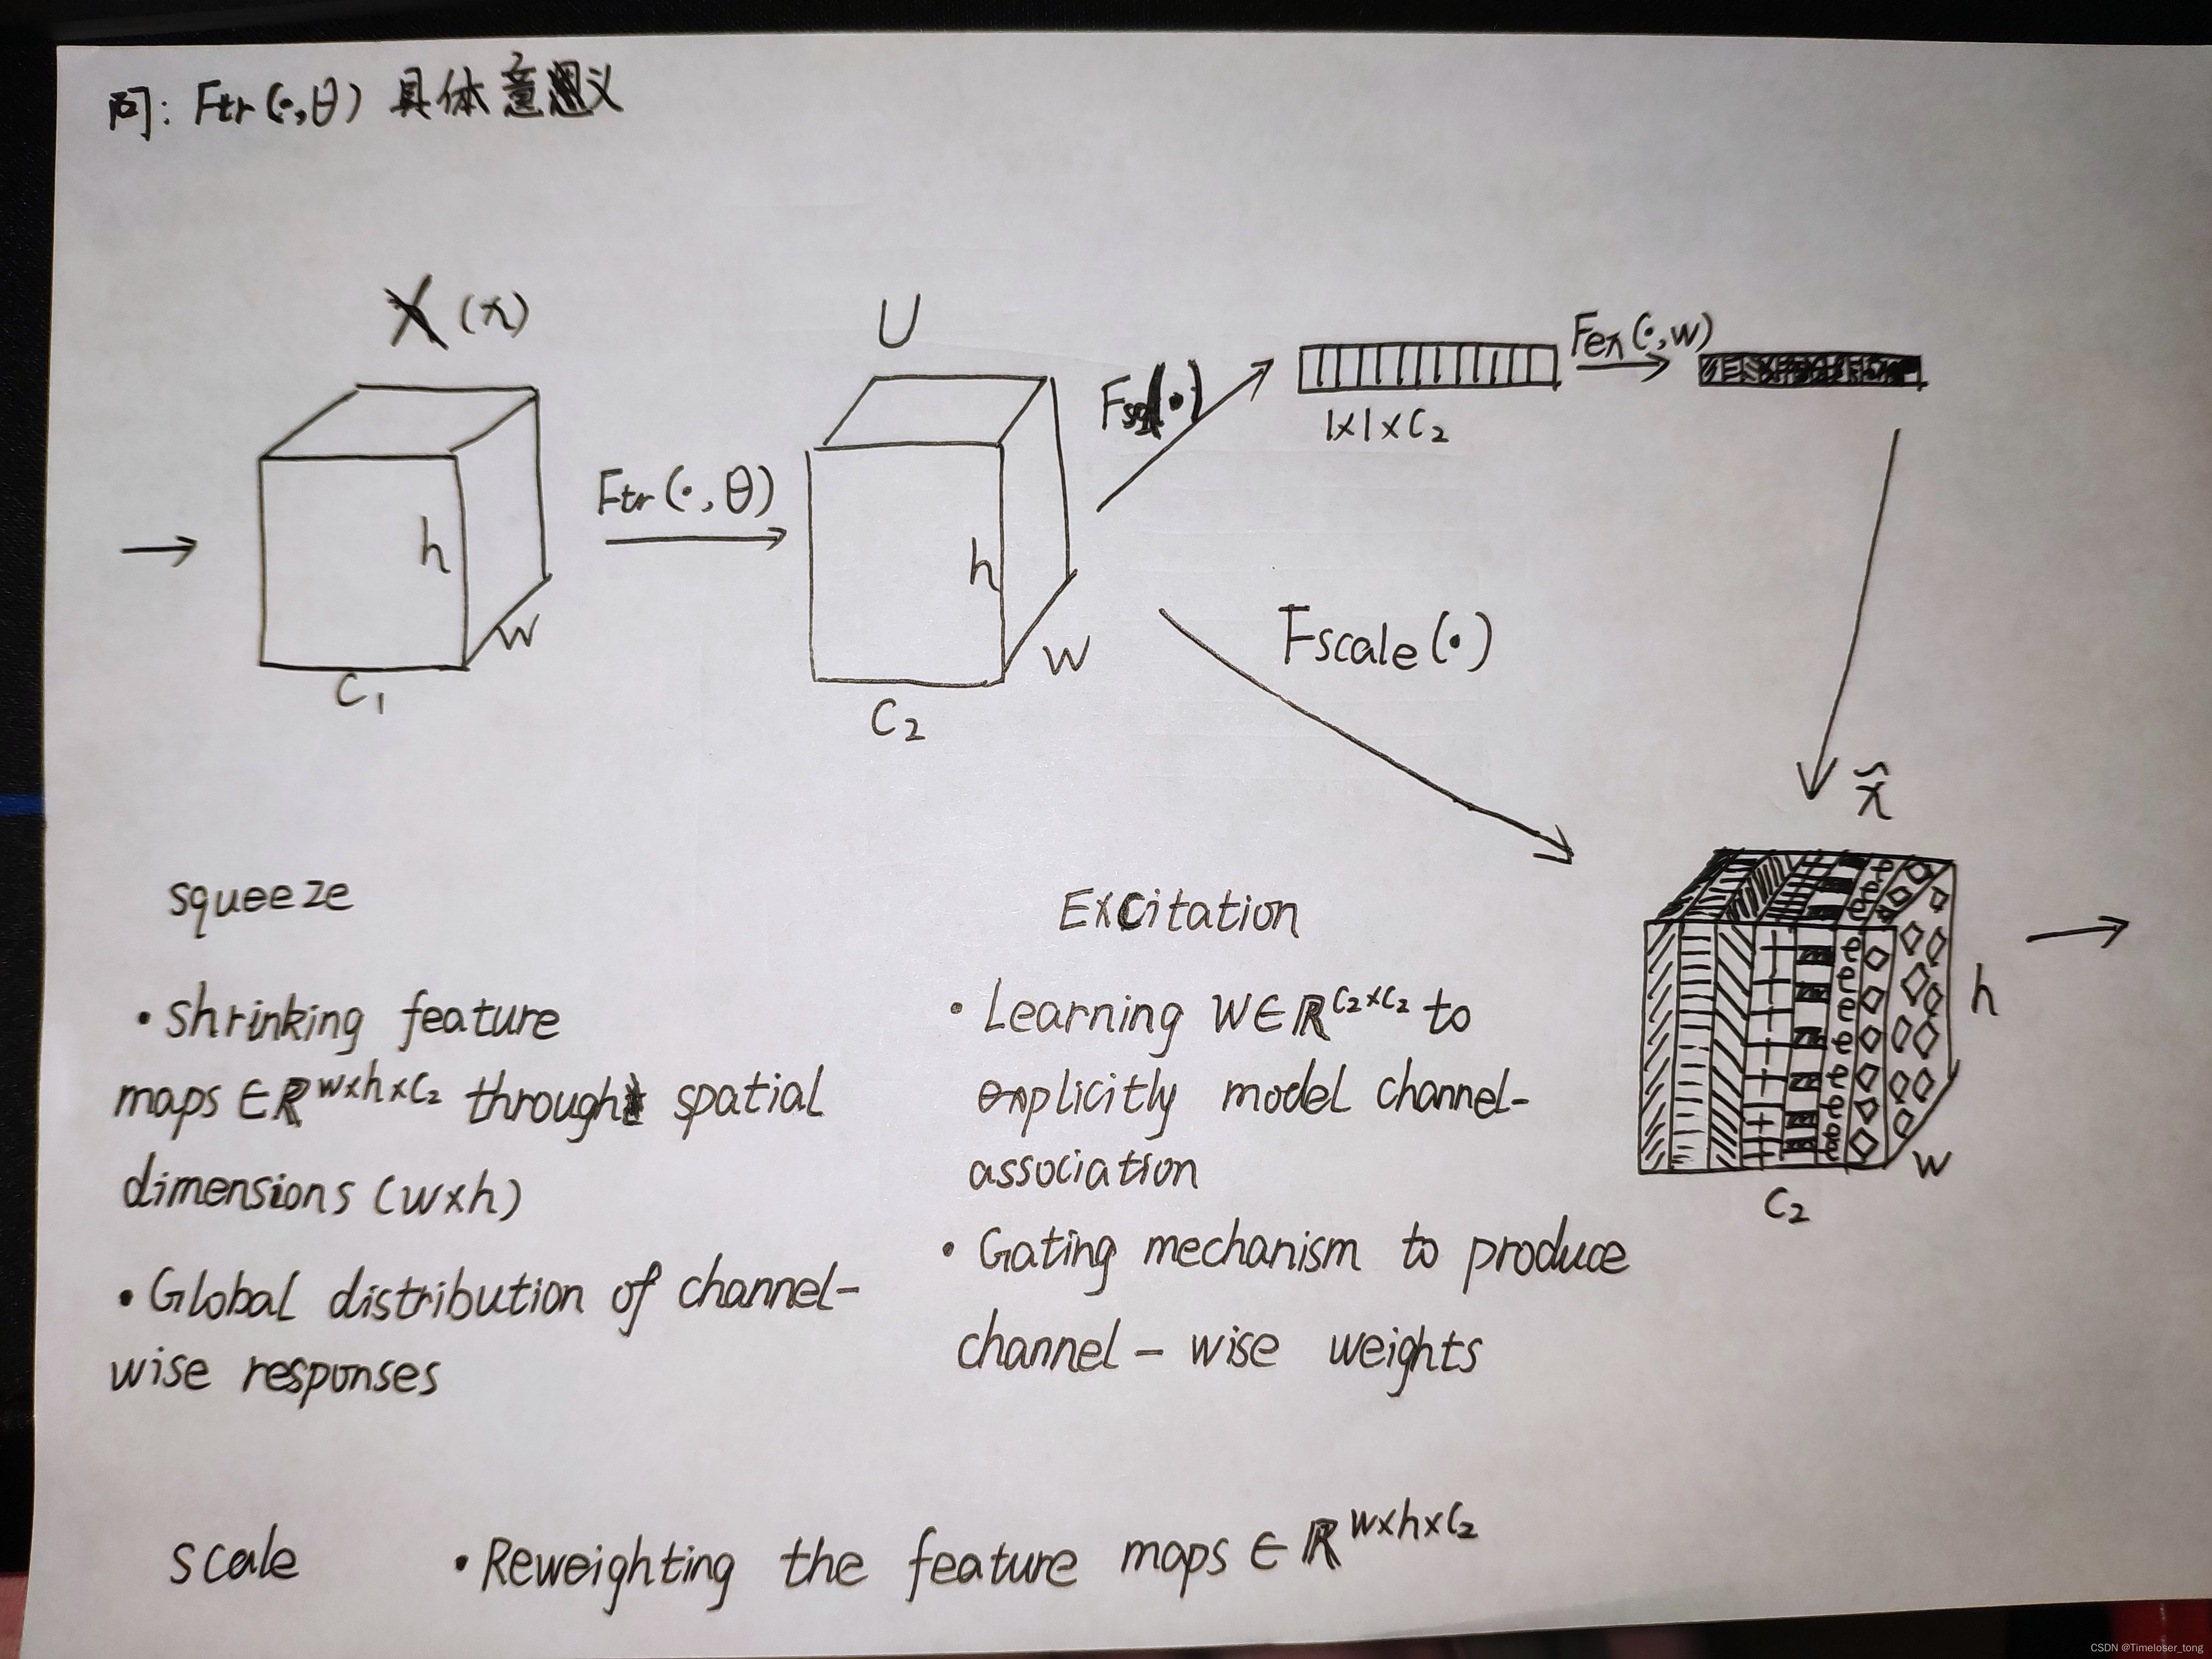 问: Ftr(·,θ) 具体意义
X (x)
U
Fsq(·)
Fex(·,w)
1×1×C₂
Ftr(·,θ)
h
w
C₁
h
w
C₂
Fscale(·)
x̃
h
w
C₂
squeeze
• Shrinking feature
maps ∈ ℝ^w×h×C₂ through spatial
dimensions (w×h)
• Global distribution of channel-
wise responses
Excitation
• Learning W∈ℝ^C₂×C₂ to
explicitly model channel-
association
• Gating mechanism to produce
channel – wise weights
scale • Reweighting the feature maps ∈ ℝ^w×h×C₂
CSDN @Timeloser_tong